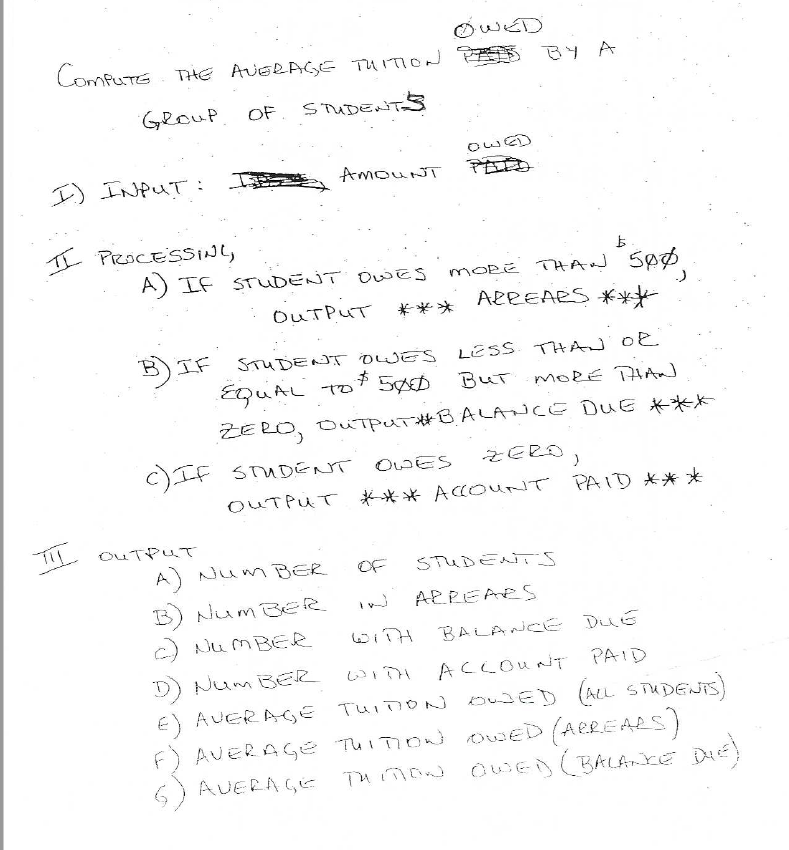 COMPUTE THE AVERAGE TUITION OWED BY A
GROUP OF STUDENTS
I) INPUT: AMOUNT OWED
II PROCESSING
A) IF STUDENT OWES MORE THAN $500,
OUTPUT *** ARREARS ***
B) IF STUDENT OWES LESS THAN OR
EQUAL TO $500 BUT MORE THAN
ZERO, OUTPUT * BALANCE DUE ***
C) IF STUDENT OWES ZERO,
OUTPUT *** ACCOUNT PAID ***
III OUTPUT
A) NUMBER OF STUDENTS
B) NUMBER IN ARREARS
C) NUMBER WITH BALANCE DUE
D) NUMBER WITH ACCOUNT PAID
E) AVERAGE TUITION OWED (ALL STUDENTS)
F) AVERAGE TUITION OWED (ARREARS)
G) AVERAGE TUITION OWED (BALANCE DUE)